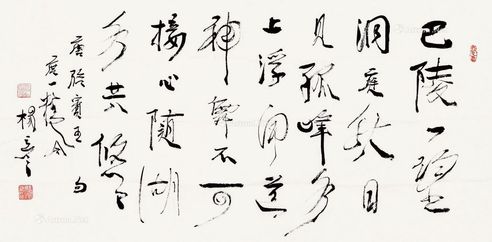 巴陵一望
洞庭秋日
见孤峰水
上浮闻道
神仙不可
接心随湖
水共悠悠
唐骆宾王句
杨